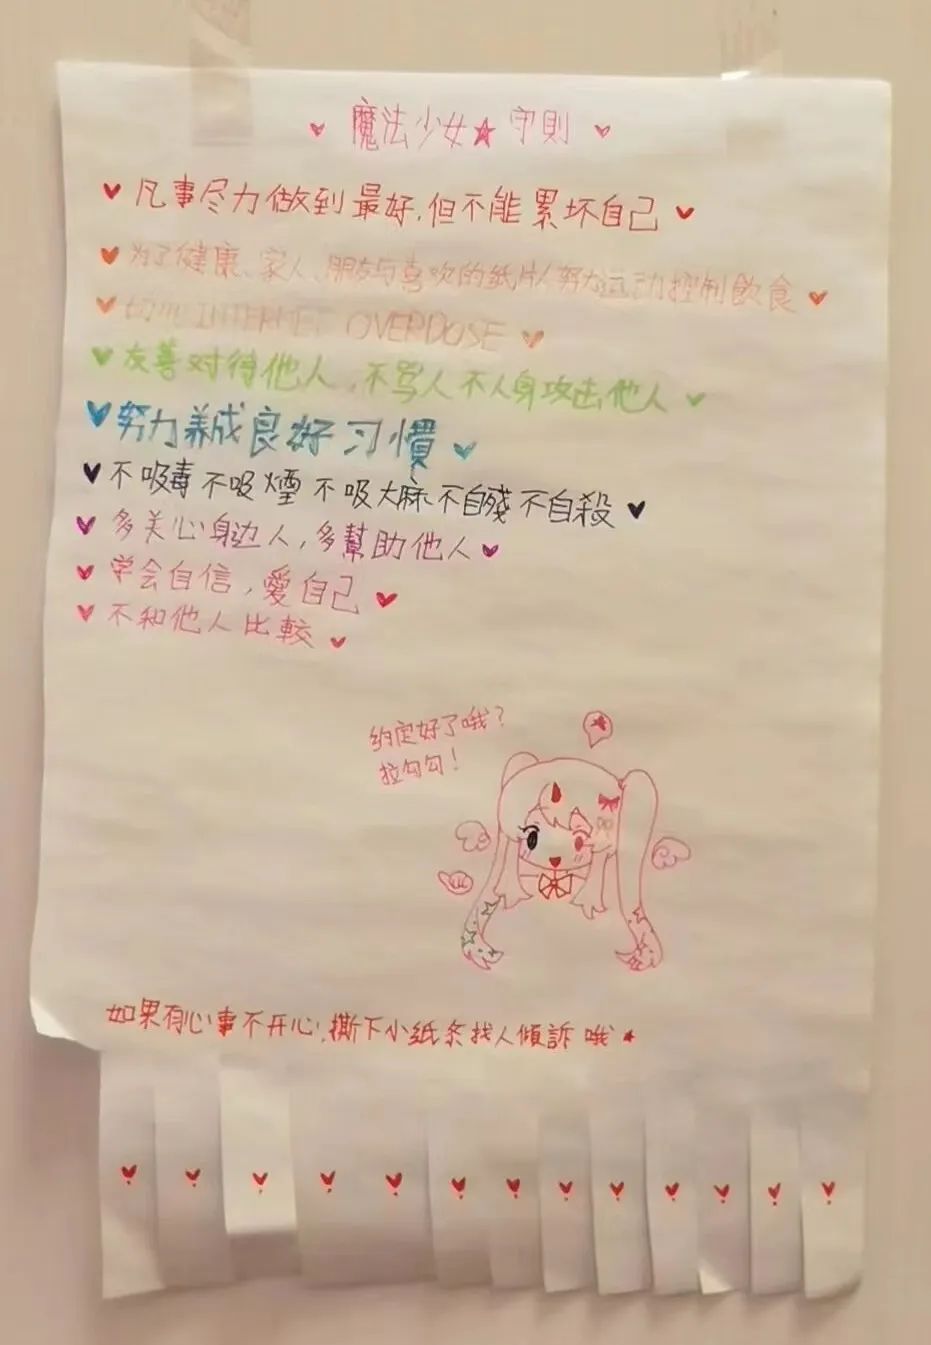 魔法少女★守則
凡事尽力做到最好,但不能累坏自己
为了健康、家人、朋友与喜欢的纸片人努力运动控制飲食
切勿INTERNET OVERDOSE
友善对待他人,不骂人不人身攻击他人
努力养成良好习慣
不吸毒不吸煙不吸大麻不自殘不自殺
多关心身边人,多幫助他人
学会自信,愛自己
不和他人比較
约定好了哦?
拉勾勾!
如果有心事不开心,撕下小纸条找人傾訴哦★